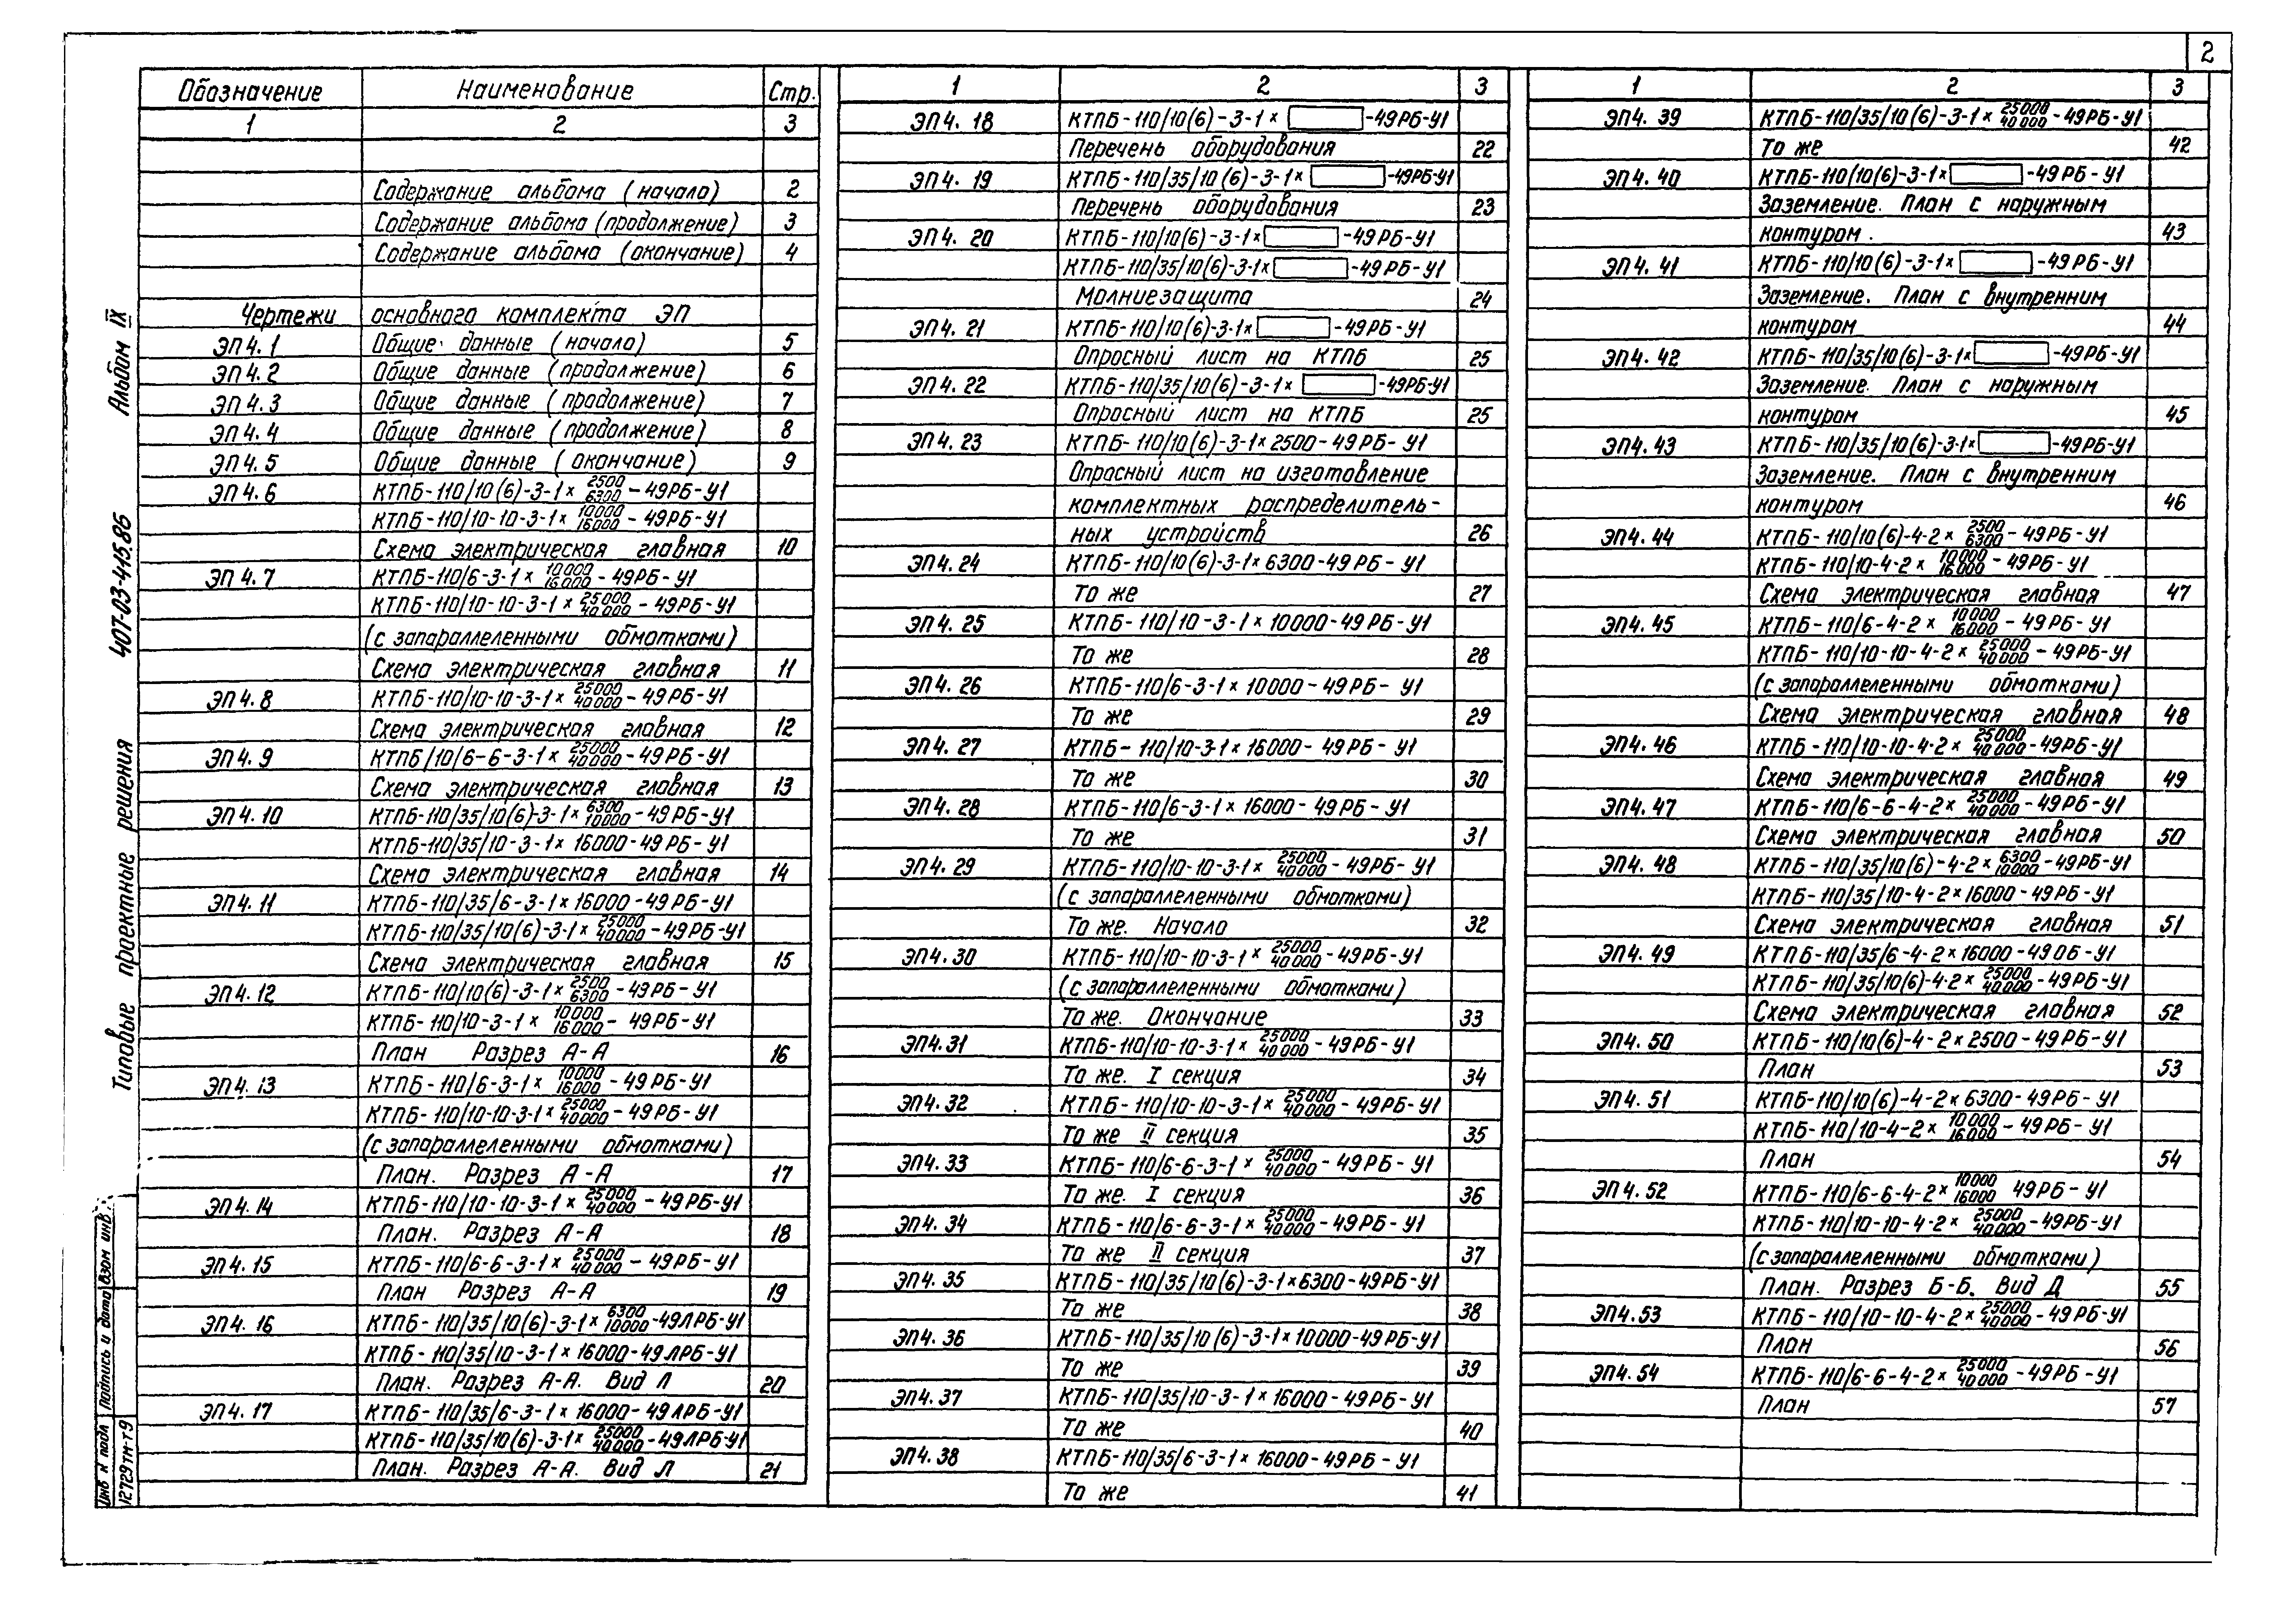 2
Альбом IX
407-03-415.86
Типовые проектные решения
Инв № подл Подпись и дата Взам инв.
12729тм-т9
Обозначение Наименование Стр.
1 2 3
Содержание альбома (начало) 2
Содержание альбома (продолжение) 3
Содержание альбома (окончание) 4
Чертежи основного комплекта ЭП
ЭП4.1 Общие данные (начало) 5
ЭП4.2 Общие данные (продолжение) 6
ЭП4.3 Общие данные (продолжение) 7
ЭП4.4 Общие данные (продолжение) 8
ЭП4.5 Общие данные (окончание) 9
ЭП4.6 КТПБ-110/10(6)-3-1× 2500/6300 -49РБ-У1
КТПБ-110/10-10-3-1× 10000/16000 -49РБ-У1
Схема электрическая главная 10
ЭП4.7 КТПБ-110/6-3-1× 10000/16000 -49РБ-У1
КТПБ-110/10-10-3-1× 25000/40000 -49РБ-У1
(с запараллеленными обмотками)
Схема электрическая главная 11
ЭП4.8 КТПБ-110/10-10-3-1× 25000/40000 -49РБ-У1
Схема электрическая главная 12
ЭП4.9 КТПБ/10/6-6-3-1× 25000/40000 -49РБ-У1
Схема электрическая главная 13
ЭП4.10 КТПБ-110/35/10(6)-3-1× 6300/10000 -49РБ-У1
КТПБ-110/35/10-3-1×16000-49РБ-У1
Схема электрическая главная 14
ЭП4.11 КТПБ-110/35/6-3-1×16000-49РБ-У1
КТПБ-110/35/10(6)-3-1× 25000/40000 -49РБ-У1
Схема электрическая главная 15
ЭП4.12 КТПБ-110/10(6)-3-1× 2500/6300 -49РБ-У1
КТПБ-110/10-3-1× 10000/16000 -49РБ-У1
План Разрез А-А 16
ЭП4.13 КТПБ-110/6-3-1× 10000/16000 -49РБ-У1
КТПБ-110/10-10-3-1× 25000/40000 -49РБ-У1
(с запараллеленными обмотками)
План. Разрез А-А 17
ЭП4.14 КТПБ-110/10-10-3-1× 25000/40000 -49РБ-У1
План. Разрез А-А 18
ЭП4.15 КТПБ-110/6-6-3-1× 25000/40000 -49РБ-У1
План Разрез А-А 19
ЭП4.16 КТПБ-110/35/10(6)-3-1× 6300/10000 -49ЛРБ-У1
КТПБ-110/35/10-3-1×16000-49ЛРБ-У1
План. Разрез А-А. Вид Л 20
ЭП4.17 КТПБ-110/35/6-3-1×16000-49ЛРБ-У1
КТПБ-110/35/10(6)-3-1× 25000/40000 -49ЛРБ-У1
План. Разрез А-А. Вид Л 21
1 2 3
ЭП4.18 КТПБ-110/10(6)-3-1× -49РБ-У1
Перечень оборудования 22
ЭП4.19 КТПБ-110/35/10(6)-3-1× -49РБ-У1
Перечень оборудования 23
ЭП4.20 КТПБ-110/10(6)-3-1× -49РБ-У1
КТПБ-110/35/10(6)-3-1× -49РБ-У1
Молниезащита 24
ЭП4.21 КТПБ-110/10(6)-3-1× -49РБ-У1
Опросный лист на КТПБ 25
ЭП4.22 КТПБ-110/35/10(6)-3-1× -49РБ-У1
Опросный лист на КТПБ 25
ЭП4.23 КТПБ-110/10(6)-3-1×2500-49РБ-У1
Опросный лист на изготовление
комплектных распределитель-
ных устройств 26
ЭП4.24 КТПБ-110/10(6)-3-1×6300-49РБ-У1
То же 27
ЭП4.25 КТПБ-110/10-3-1×10000-49РБ-У1
То же 28
ЭП4.26 КТПБ-110/6-3-1×10000-49РБ-У1
То же 29
ЭП4.27 КТПБ-110/10-3-1×16000-49РБ-У1
То же 30
ЭП4.28 КТПБ-110/6-3-1×16000-49РБ-У1
То же 31
ЭП4.29 КТПБ-110/10-10-3-1× 25000/40000 -49РБ-У1
(с запараллеленными обмотками)
То же. Начало 32
ЭП4.30 КТПБ-110/10-10-3-1× 25000/40000 -49РБ-У1
(с запараллеленными обмотками)
То же. Окончание 33
ЭП4.31 КТПБ-110/10-10-3-1× 25000/40000 -49РБ-У1
То же. I секция 34
ЭП4.32 КТПБ-110/10-10-3-1× 25000/40000 -49РБ-У1
То же II секция 35
ЭП4.33 КТПБ-110/6-6-3-1× 25000/40000 -49РБ-У1
То же. I секция 36
ЭП4.34 КТПБ-110/6-6-3-1× 25000/40000 -49РБ-У1
То же II секция 37
ЭП4.35 КТПБ-110/35/10(6)-3-1×6300-49РБ-У1
То же 38
ЭП4.36 КТПБ-110/35/10(6)-3-1×10000-49РБ-У1
То же 39
ЭП4.37 КТПБ-110/35/10-3-1×16000-49РБ-У1
То же 40
ЭП4.38 КТПБ-110/35/6-3-1×16000-49РБ-У1
То же 41
1 2 3
ЭП4.39 КТПБ-110/35/10(6)-3-1× 25000/40000 -49РБ-У1
То же 42
ЭП4.40 КТПБ-110/10(6)-3-1× -49РБ-У1
Заземление. План с наружным
контуром. 43
ЭП4.41 КТПБ-110/10(6)-3-1× -49РБ-У1
Заземление. План с внутренним
контуром 44
ЭП4.42 КТПБ-110/35/10(6)-3-1× -49РБ-У1
Заземление. План с наружным
контуром 45
ЭП4.43 КТПБ-110/35/10(6)-3-1× -49РБ-У1
Заземление. План с внутренним
контуром 46
ЭП4.44 КТПБ-110/10(6)-4-2× 2500/6300 -49РБ-У1
КТПБ-110/10-4-2× 10000/16000 -49РБ-У1
Схема электрическая главная 47
ЭП4.45 КТПБ-110/6-4-2× 10000/16000 -49РБ-У1
КТПБ-110/10-10-4-2× 25000/40000 -49РБ-У1
(с запараллеленными обмотками)
Схема электрическая главная 48
ЭП4.46 КТПБ-110/10-10-4-2× 25000/40000 -49РБ-У1
Схема электрическая главная 49
ЭП4.47 КТПБ-110/6-6-4-2× 25000/40000 -49РБ-У1
Схема электрическая главная 50
ЭП4.48 КТПБ-110/35/10(6)-4-2× 6300/10000 -49РБ-У1
КТПБ-110/35/10-4-2×16000-49РБ-У1
Схема электрическая главная 51
ЭП4.49 КТПБ-110/35/6-4-2×16000-49ОБ-У1
КТПБ-110/35/10(6)-4-2× 25000/40000 -49РБ-У1
Схема электрическая главная 52
ЭП4.50 КТПБ-110/10(6)-4-2×2500-49РБ-У1
План 53
ЭП4.51 КТПБ-110/10(6)-4-2×6300-49РБ-У1
КТПБ-110/10-4-2× 10000/16000 -49РБ-У1
План 54
ЭП4.52 КТПБ-110/6-6-4-2× 10000/16000 49РБ-У1
КТПБ-110/10-10-4-2× 25000/40000 -49РБ-У1
(с запараллеленными обмотками)
План. Разрез Б-Б. Вид Д 55
ЭП4.53 КТПБ-110/10-10-4-2× 25000/40000 -49РБ-У1
План 56
ЭП4.54 КТПБ-110/6-6-4-2× 25000/40000 -49РБ-У1
План 57